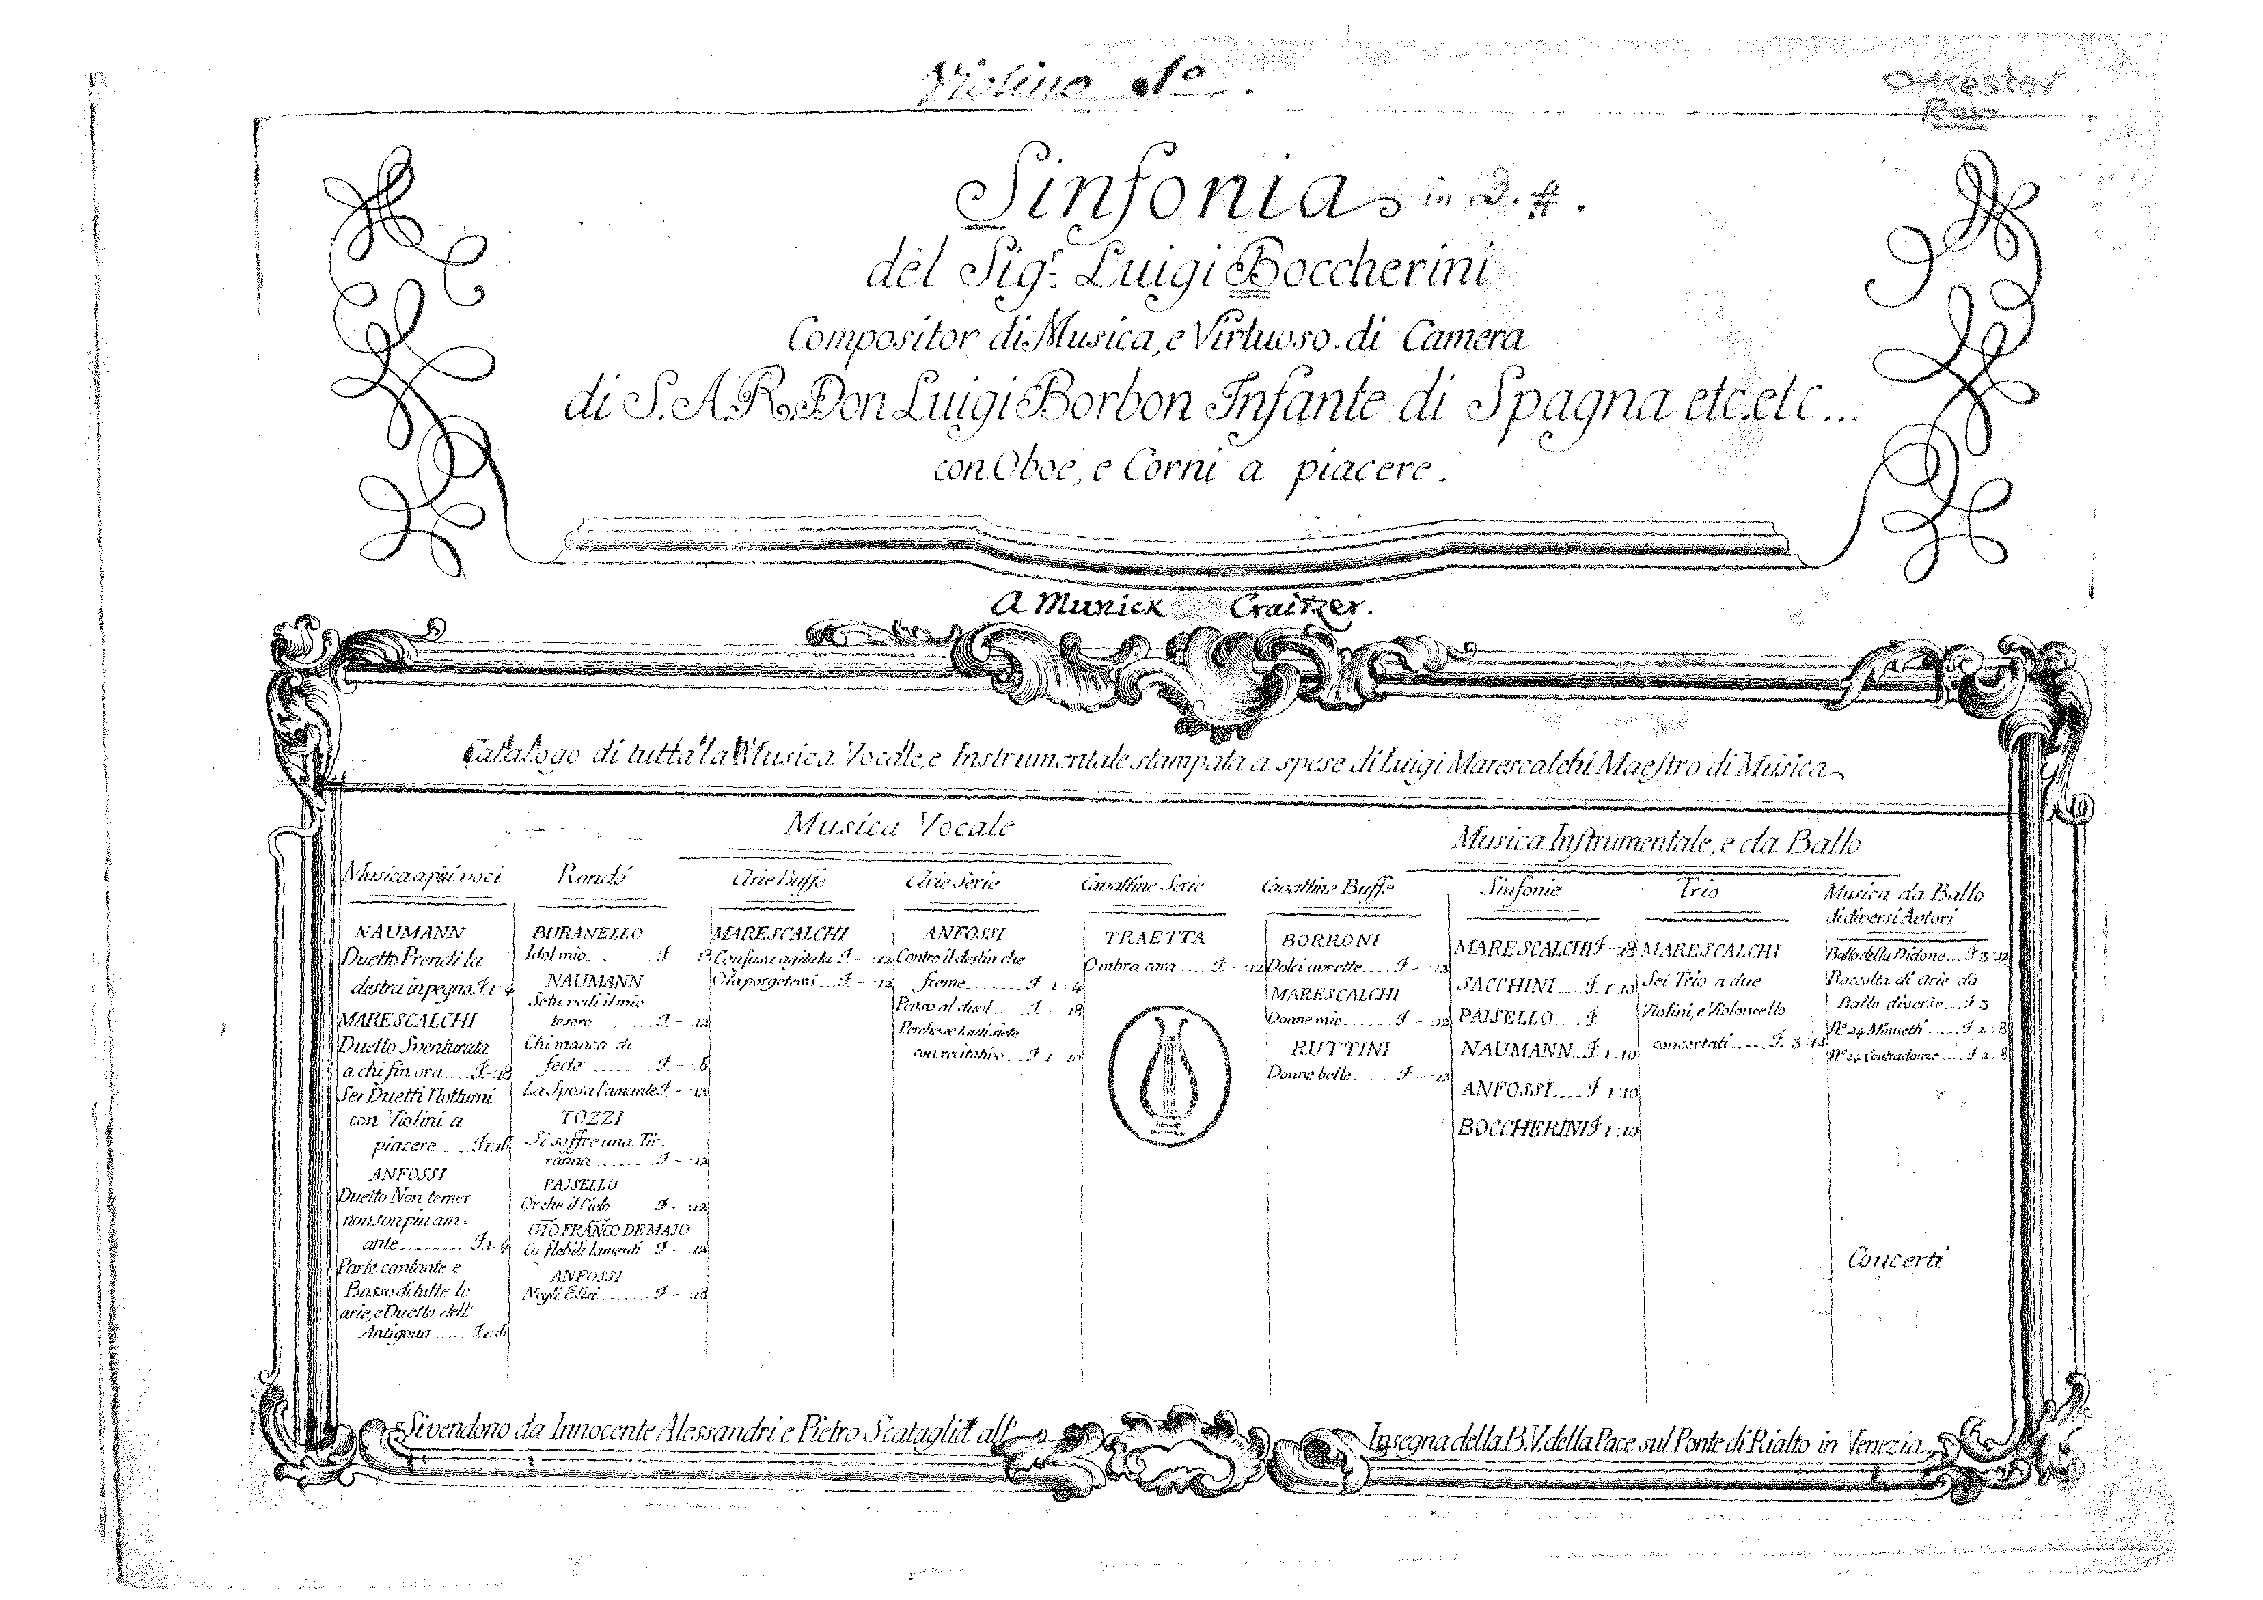 Violino 1º.
Orkester
Sinfonia in D.#.
del Sigr. Luigi Boccherini
Compositor di Musica, e Virtuoso di Camera
di S.A.R. Don Luigi Borbon Infante di Spagna etc. etc...
con Oboe, e Corni a piacere.
A Munick Craitzer.
Catalogo di tutta la Musica Vocale, e Instrumentale stampata a spese di Luigi Marescalchi Maestro di Musica
Musica Vocale
Musica a più voci
NAUMANN
Duetto Prendi la
destra in pegno
MARESCALCHI
Duetto Sventurata
a chi fin ora
Sei Duetti Notturni
con Violini a
piacere
ANFOSSI
Duetto Non temer
non son piu am-
ante
Parte cantante e
Basso di tutte le
arie, e Duetto dell'
Antigono
Rondò
BURANELLO
Idol mio
NAUMANN
Se tu vedi il mio
tesoro
Chi manca di
fede
La Sposa l'amante
TOZZI
Si soffre una Tir-
ranna
PAISELLO
Or che il Cielo
GIO. FRANCO DE MAJO
Lamenti
ANFOSSI
Negli Elisi
Arie Buffe
MARESCALCHI
Confusa agitata
Arie Serie
ANFOSSI
Contro il destin che
freme
Penso al duol
con recitativo
Cavattine Serie
TRAETTA
Ombra cara
Cavattine Buffe
BORRONI
Dolci aurette
MARESCALCHI
Donne mie
RUTTINI
Donne belle
Musica Instrumentale, e da Ballo
Sinfonie
MARESCALCHI
SACCHINI
PAISELLO
NAUMANN 1:10
ANFOSSI 1:10
BOCCHERINI 1:10
Trio
MARESCALCHI
Sei Trio a due
Violini, e Violoncello
concertati
Musica da Ballo
di diversi Autori
Ballo della Didone
Raccolta di arie da
Ballo diverse 3
Nº 24 Minuetti 2:8
Nº 24 Contradanze 2:8
Concerti
Si vendono da Innocente Alessandri e Pietro Scataglia all'
Insegna della B.V. della Pace sul Ponte di Rialto in Venezia